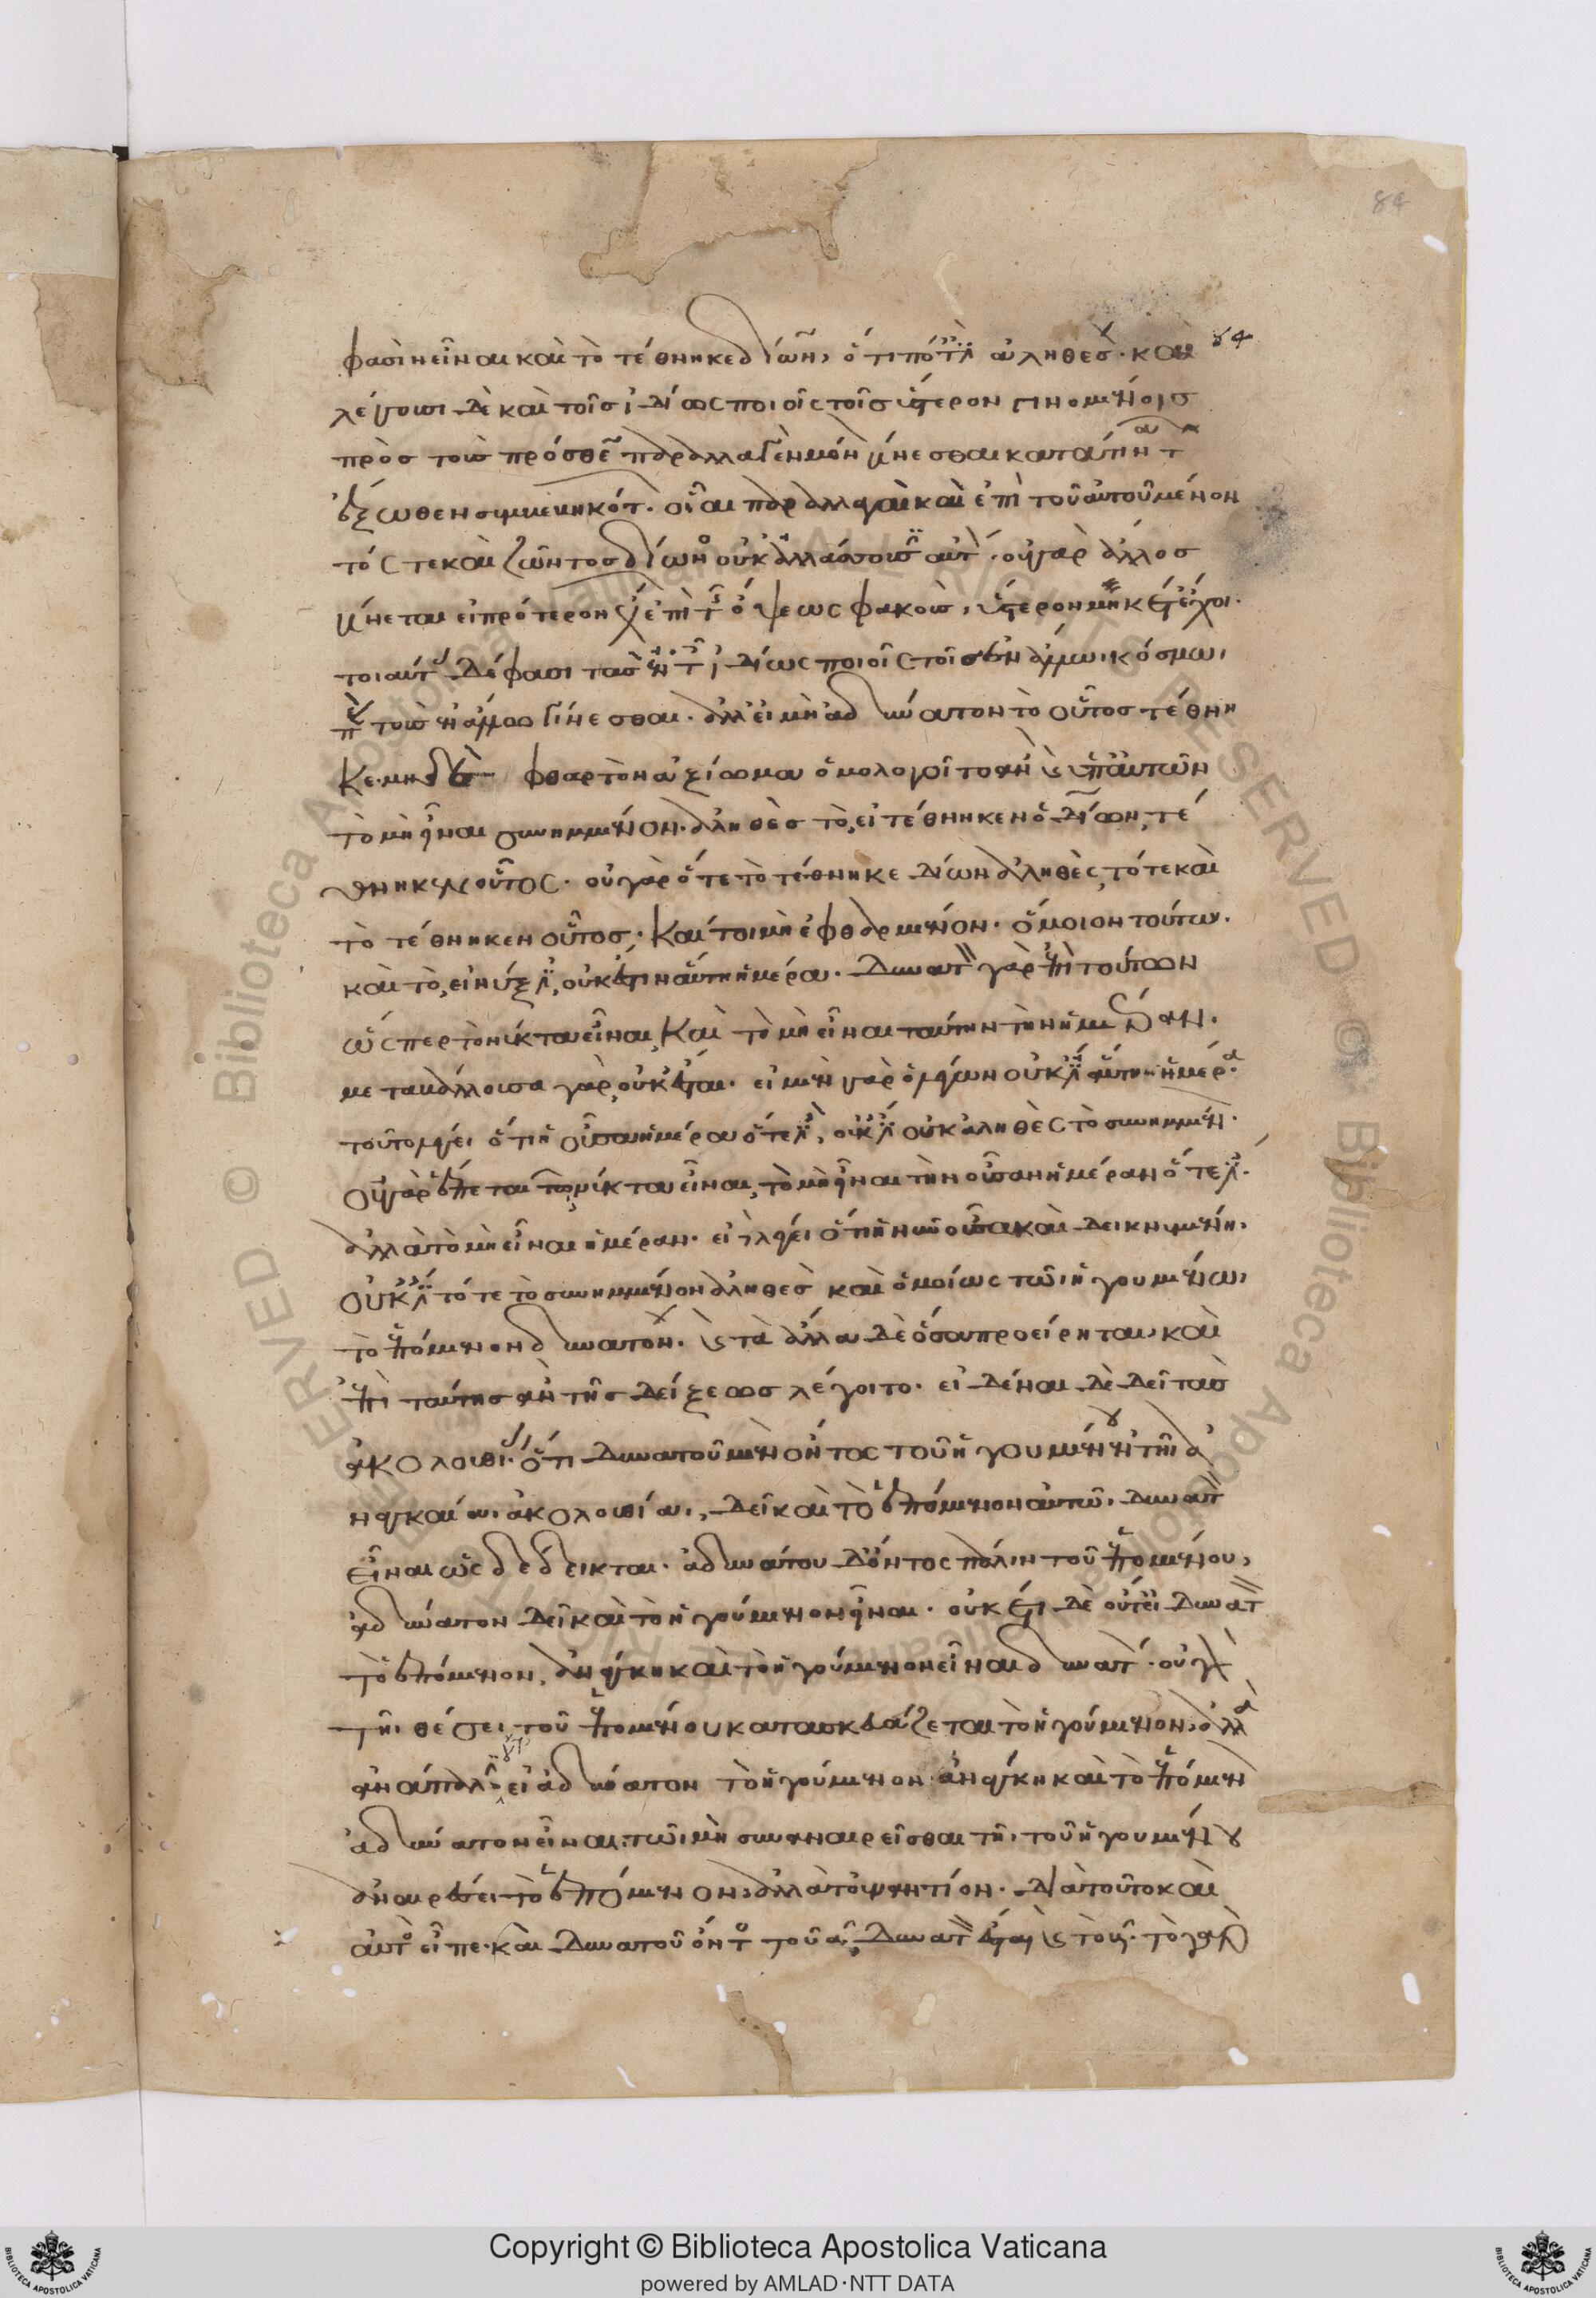 84
φασὶν εἶναι καὶ τὸ τέθνηκε δίων, ὅτι ποτέ ἐστιν ἀληθές. καὶ
λέγουσι δὲ καὶ τοῖς ἰδίως ποιοῖς τοῖς ὕστερον γινομένοις
πρὸς τοὺς πρόσθεν παραλλαγὰς μόνον γίνεσθαι κατά τινα τῶν
ἔξωθεν συμβεβηκότων. οἷαι παραλλαγαὶ καὶ ἐπὶ τοῦ αὐτοῦ μένον
τός τε καὶ ζῶντος δίωνος οὐκ ἀλλάσσουσιν αὐτόν. οὐ γὰρ ἄλλος
γίνεται εἰ πρότερον ἔχων ἐπὶ τῆς ὄψεως φακοὺς, ὕστερον μηκέτ' ἔχοι.
τοιαύτας δέ φασι τὰς ἐν τοῖς ἰδίως ποιοῖς τοῖς ἐν ἄλλωι κόσμωι
παρὰ τοὺς ἐν ἄλλωι γίνεσθαι. ἀλλ' εἰ μὴ ἀδύνατον τὸ οὗτος τέθνη
κε. μηδὲ φθαρτὸν ἀξίωμα ὁμολογοῖτο ἂν ὑπ' αὐτῶν
τὸ μὴ εἶναι συνημμένον. ἀληθὲς τὸ, εἰ τέθνηκεν ὁ δίων, τέ
θνηκεν οὗτος. οὐ γὰρ ὅτε τὸ τέθνηκε δίων ἀληθὲς, τότε καὶ
τὸ τέθνηκεν οὗτος. καίτοι μὴ ἐφθαρμένον. ὅμοιον τούτωι.
καὶ τὸ, εἰ νύξ ἐστιν, οὐκ ἔστιν αὕτη ἡμέρα. δυνατὸν γὰρ ἐπὶ τούτων
ὥσπερ τὸ νύκτα εἶναι, καὶ τὸ μὴ εἶναι ταύτην τὴν ἡμέραν.
μεταβάλλουσα γὰρ, οὐκ ἔσται. εἰ μὲν γὰρ ὁ λέγων οὐκ ἔστιν αὕτη ἡ ἡμέρα
τοῦτο λέγει ὅτι ἡ οὖσα ἡμέρα ὅτε ἐστὶν, οὐκ ἔστιν οὐκ ἀληθὲς τὸ συνημμένον.
οὐ γὰρ ἕπεται τῶι νύκτα εἶναι, τὸ μὴ εἶναι τὴν οὖσαν ἡμέραν ὅτε ἐστίν.
ἀλλὰ τὸ μὴ εἶναι ἡμέραν. εἰ δὲ λέγει ὅτι ἡ νῦν οὖσα καὶ δεικνυμένη.
οὐκ ἔστιν τότε τὸ συνημμένον ἀληθὲς καὶ ὁμοίως τῶι ἡγουμένωι
τὸ ἑπόμενον δυνατόν. καὶ τὰ ἄλλα δὲ ὅσα προείρηται, καὶ
ἐπὶ ταύτης ἂν τῆς δείξεως λέγοιτο. εἰδέναι δὲ δεῖ τὰς
ἀκολουθίας. ὅτι δυνατοῦ μὲν ὄντος τοῦ ἡγουμένου ἐν τῆι ἀ
ναγκαίαι ἀκολουθίαι, δεῖ καὶ τὸ ἑπόμενον αὐτῶι δυνατὸν
εἶναι ὡς δέδεικται. ἀδυνάτου δ' ὄντος πάλιν τοῦ ἑπομένου,
ἀδύνατον δεῖ καὶ τὸ ἡγούμενον εἶναι. οὐκέτι δὲ οὔτε εἰ δυνατὸν
τὸ ἑπόμενον, ἀνάγκη καὶ τὸ ἡγούμενον εἶναι δυνατόν. οὐ γὰρ
τῆι θέσει τοῦ ἑπομένου κατασκευάζεται τὸ ἡγούμενον, ἀλλ'
ἀνάπαλιν. εἰ ἀδύνατον τὸ ἡγούμενον ἀνάγκη καὶ τὸ ἑπόμενον
ἀδύνατον εἶναι, τῶι μὴ συναναιρεῖσθαι τῆι τοῦ ἡγουμένου
ἀναιρέσει τὸ ἑπόμενον, ἀλλὰ τὸ ἐναντίον. διὰ τοῦτο καὶ
αὐτὸς εἶπε. καὶ δυνατοῦ ὄντος τοῦ α, δυνατὸν ἔσται καὶ τὸ β. τὸ γὰρ